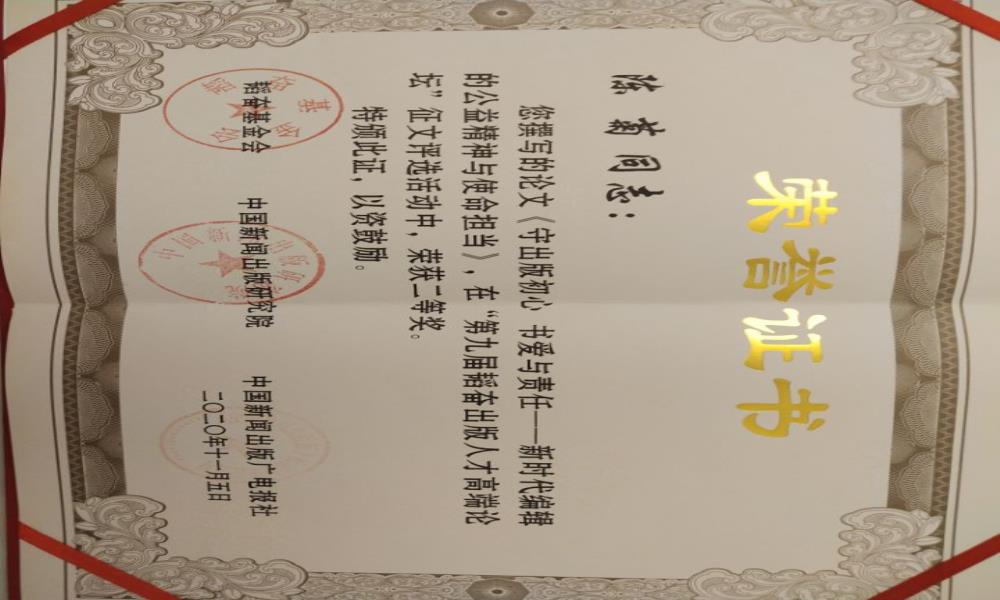 荣誉证书
陈菊同志：
您撰写的论文《守出版初心 书爱与责任——新时代编辑
的公益精神与使命担当》，在“第九届韬奋出版人才高端论
坛”征文评选活动中，荣获二等奖。
特颁此证，以资鼓励。
韬奋基金会 中国新闻出版研究院 中国新闻出版广电报社
二〇二〇年十一月五日